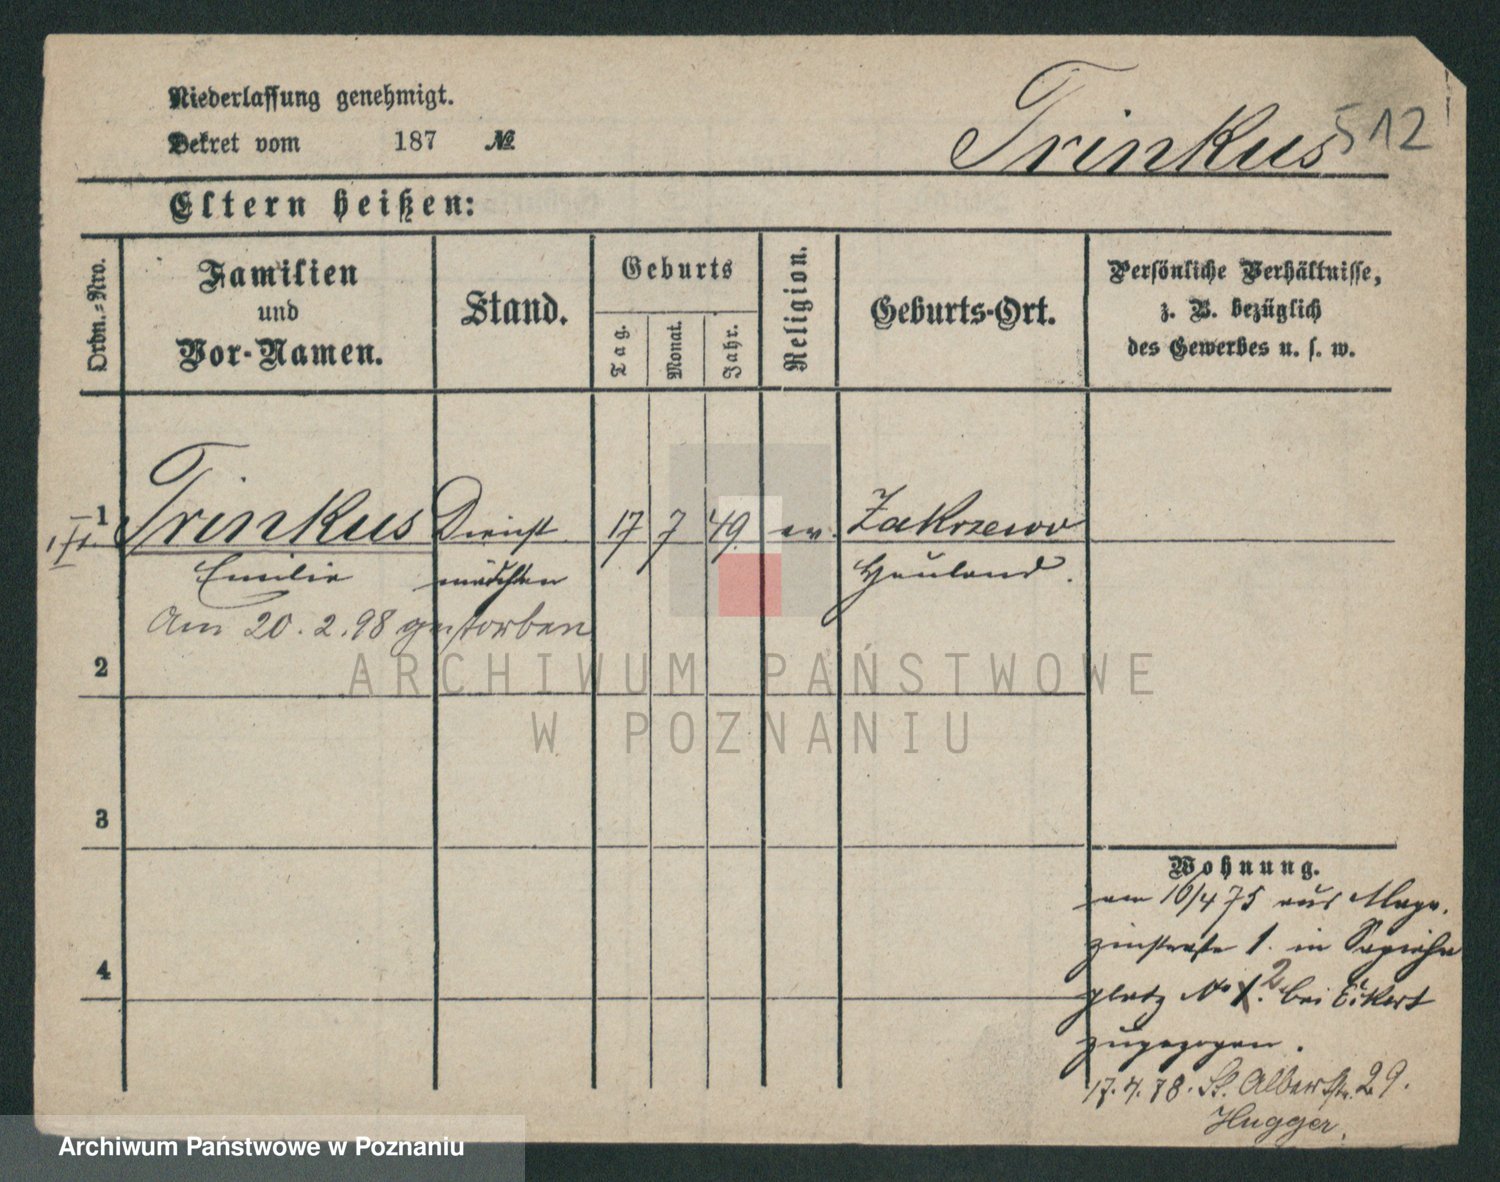 Niederlassung genehmigt.
Dekret vom 187 №
Trinkus 512
Eltern heißen:
Ordn.-Nro.
Familien
und
Vor-Namen.
Stand.
Geburts
Tag.
Monat.
Jahr.
Religion.
Geburts-Ort.
Persönliche Verhältnisse,
z. B. bezüglich
des Gewerbes u. s. w.
1 Trinkus Dienst 17 7 49. ev. Zakrzewo
Emilie mädchen Hauland.
Am 20. 2. 98 gestorben
2
3
4
Wohnung.
am 10/4 75 aus Maga-
zinstraße 1. in Sapieha
platz No 2 bei Eckert
zugezogen.
17. 4. 78. St. Albertstr. 29.
Hugger.
ARCHIWUM PAŃSTWOWE
W POZNANIU
Archiwum Państwowe w Poznaniu